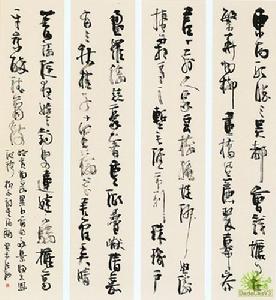 東南形勝三吳都會錢塘自古
繁華煙柳畫橋風簾翠幕參
差十萬人家雲樹繞堤沙怒濤
捲霜雪天塹無涯市列珠璣戶
盈羅綺競豪奢重湖疊巘清嘉
有三秋桂子十里荷花羌管弄晴
菱歌泛夜嬉嬉釣叟蓮娃千騎擁高
牙乘醉聽簫鼓
吟賞煙霞異日圖將好景歸去鳳
池誇 柳永詞望海潮